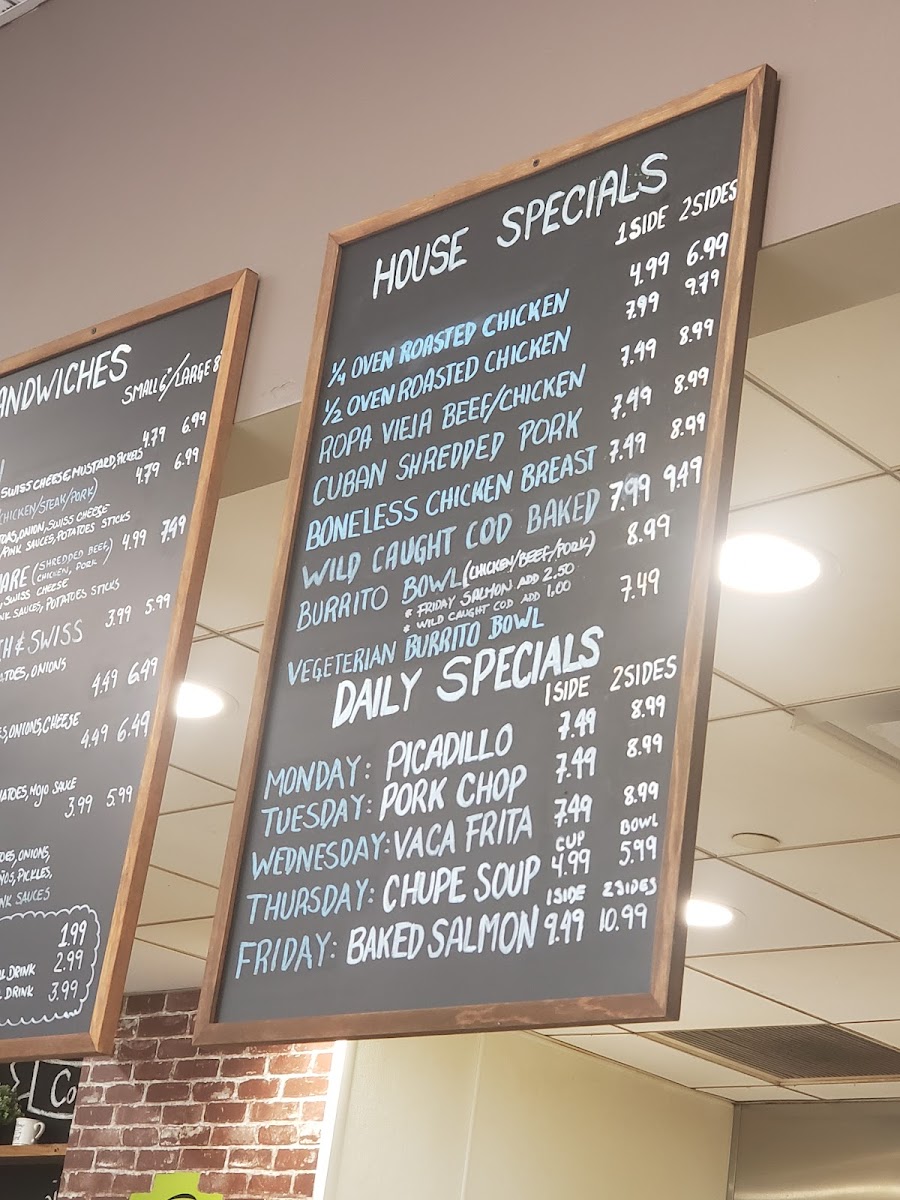 SANDWICHES
SMALL 6"/LARGE 8
4.79 6.99
SWISS CHEESE, MUSTARD, PICKLES
4.79 6.99
CHICKEN/STEAK/PORK)
ONION, SWISS CHEESE
PINK SAUCES, POTATOES STICKS
(SHREDDED BEEF, CHICKEN, PORK) 4.99 7.49
SWISS CHEESE
SAUCES, POTATOES STICKS
& SWISS 3.99 5.99
ONIONS
4.49 6.49
ONIONS, CHEESE
4.49 6.49
MOJO SAUCE
3.99 5.99
ONIONS,
PICKLES,
SAUCES
1.99
DRINK 2.99
DRINK 3.99
HOUSE SPECIALS
1 SIDE 2 SIDES
1/4 OVEN ROASTED CHICKEN 4.99 6.99
1/2 OVEN ROASTED CHICKEN 7.99 9.79
ROPA VIEJA BEEF/CHICKEN 7.49 8.99
CUBAN SHREDDED PORK 7.49 8.99
BONELESS CHICKEN BREAST 7.49 8.99
WILD CAUGHT COD BAKED 7.99 9.49
BURRITO BOWL (CHICKEN/BEEF/PORK) 8.99
* FRIDAY SALMON ADD 2.50
* WILD CAUGHT COD ADD 1.00
VEGETERIAN BURRITO BOWL 7.49
DAILY SPECIALS
1 SIDE 2 SIDES
MONDAY: PICADILLO 7.49 8.99
TUESDAY: PORK CHOP 7.49 8.99
WEDNESDAY: VACA FRITA 7.49 8.99
CUP BOWL
THURSDAY: CHUPE SOUP 4.99 5.99
1 SIDE 2 SIDES
FRIDAY: BAKED SALMON 9.49 10.99